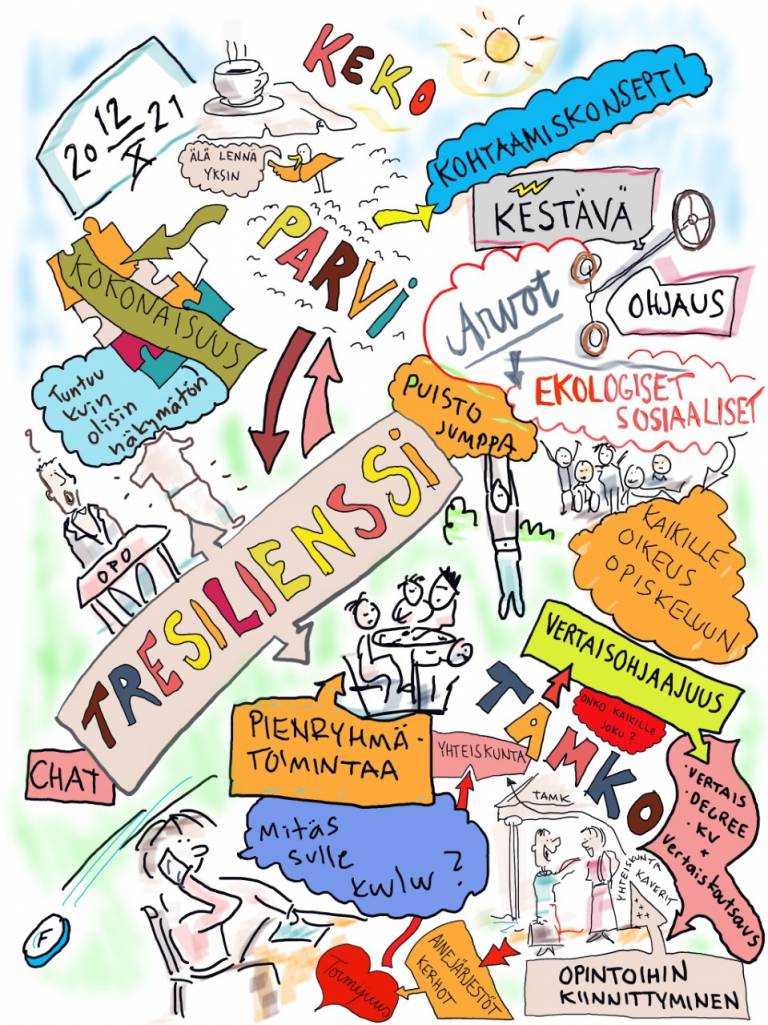 KEKO
12
20 — 21
X
ÄLÄ LENNÄ
YKSIN
KOHTAAMISKONSEPTI
KESTÄVÄ
PARVI
KOKONAISUUS
Arvot
OHJAUS
Tuntuu
kuin
olisin
näkymätön
PUISTO
JUMPPA
EKOLOGISET
SOSIAALISET
OPO
TRESILIENSSI
KAIKILLE
OIKEUS
OPISKELUUN
VERTAISOHJAAJUUS
ONKO KAIKILLE
JOKU?
TAMKO
PIENRYHMÄ-
TOIMINTAA
YHTEISKUNTA
CHAT
TAMK
· VERTAIS
· DEGREE
· KV
+
Vertaiskoutsaus
Mitäs
sulle
kuuluu?
YHTEISKUNTA
KAVERIT
F
AINEJÄRJESTÖT
KERHOT
OPINTOIHIN
KIINNITTYMINEN